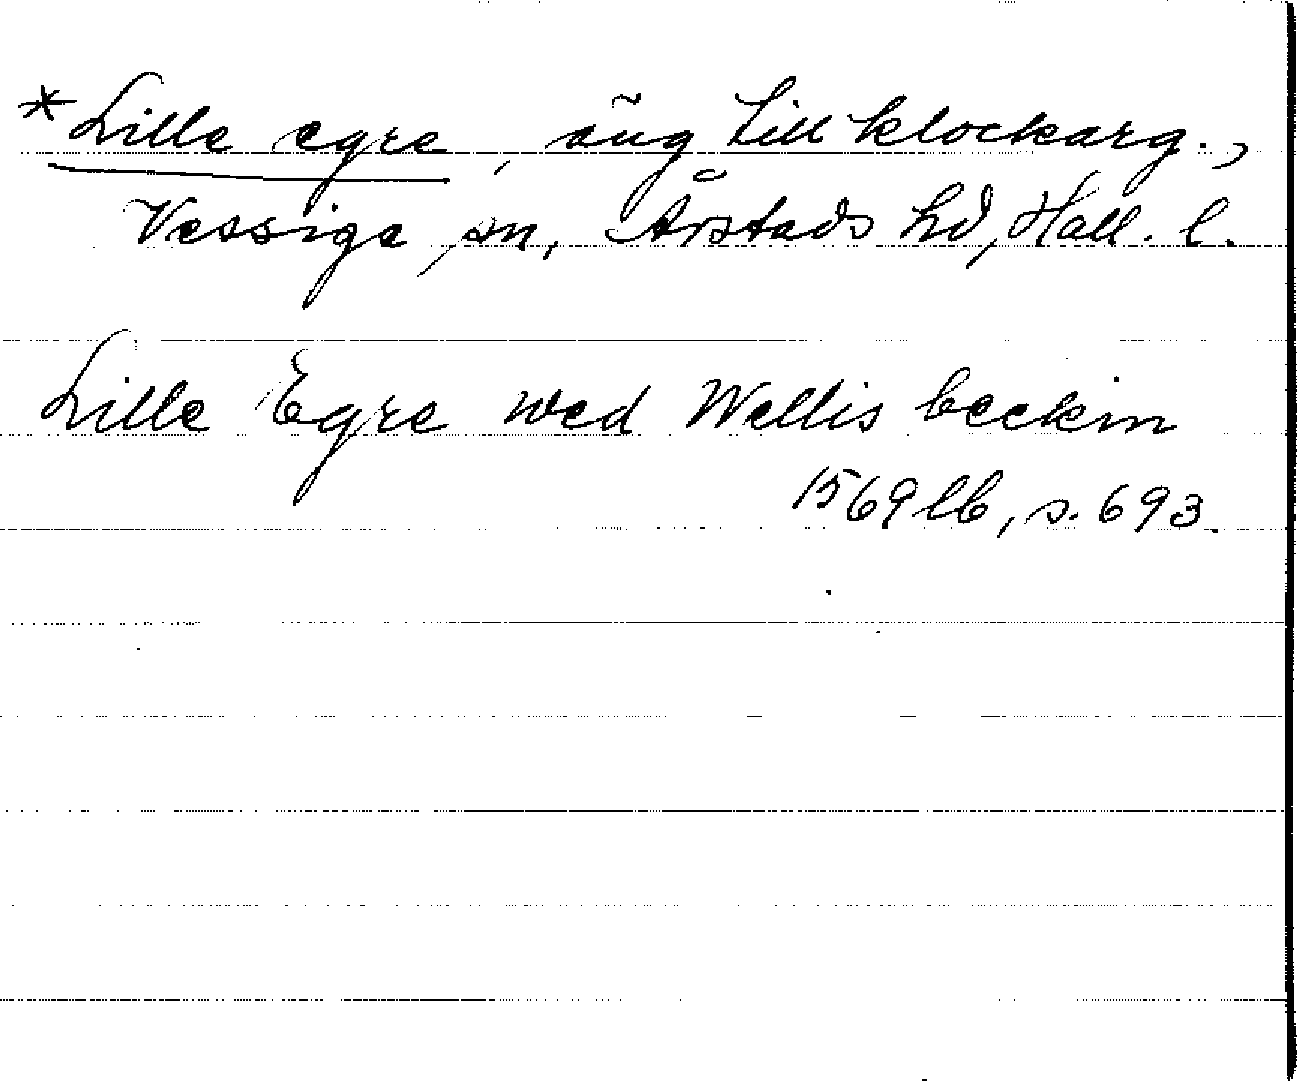 *Lille egre, äng till klockarg.,
Vessige sn, Årstads hd, Hall. l.
Lille Egre wed Wellis beckin
1569 lb, s. 693.